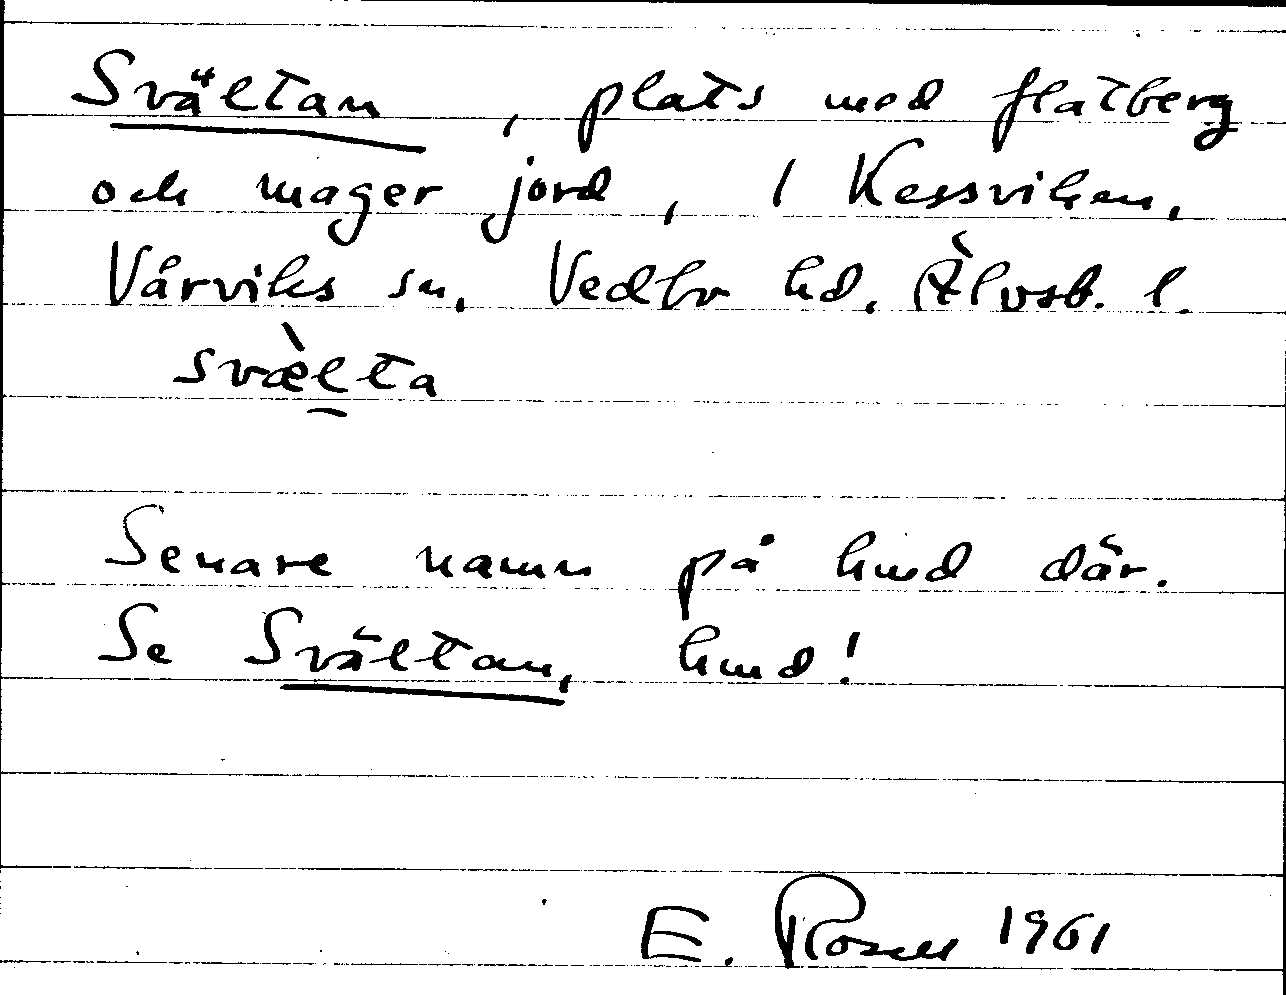 Svältan, plats med flatberg
och mager jord, i Kessviken,
Vårviks sn, Vedbo hd, Älvsb. l.
svæ̀lta
Senare namn på hmd där.
Se Svältan, hmd!
E. Rosell 1961